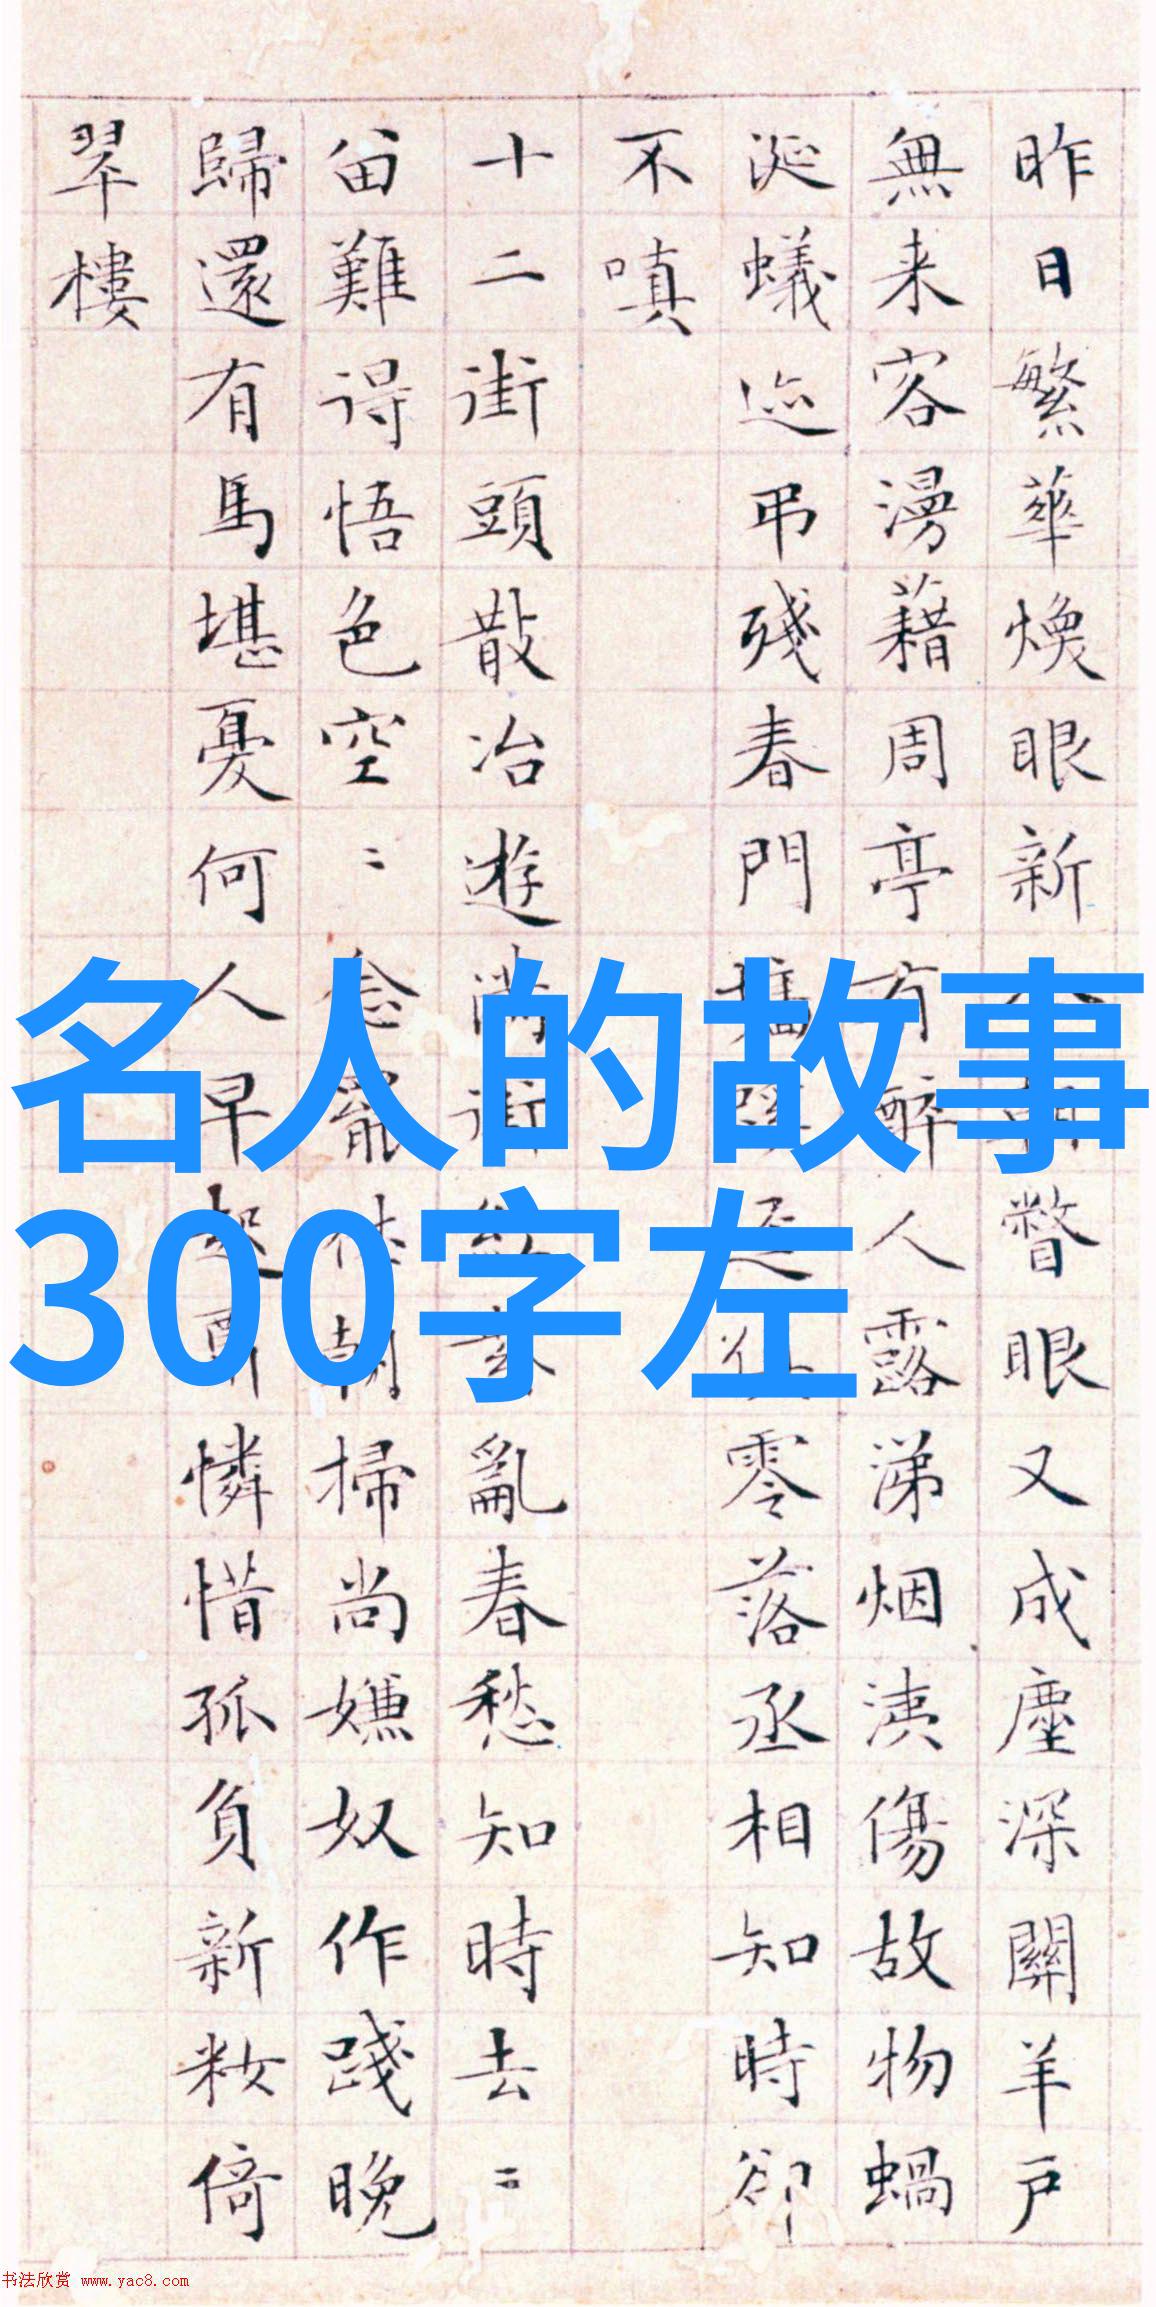 名人的故事
300字左
昨日繁華煥眼新瞥眼又成塵深關羊戶
無来客漫藉周亭有醉人露涕烟洟傷故物蝸
涎蟻迹弔殘春門零落丞相知時卻
不嗔
十二街頭散冶遊滿街亂春愁知時去〻
留難得悟色空〻念罷朝掃尚嫌奴作踐晚
歸還有馬堪憂何人早起憐惜孤負新籹倚
翠樓
书法欣赏 www.yac8.com